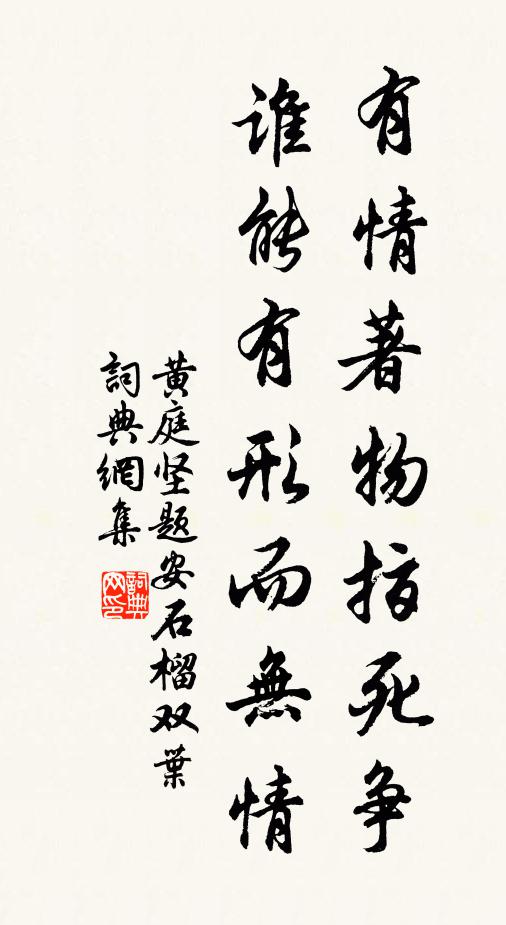 有情著物抵死争
谁能有形而無情
黄庭坚题安石榴双葉
詞典網集
詞典
网印